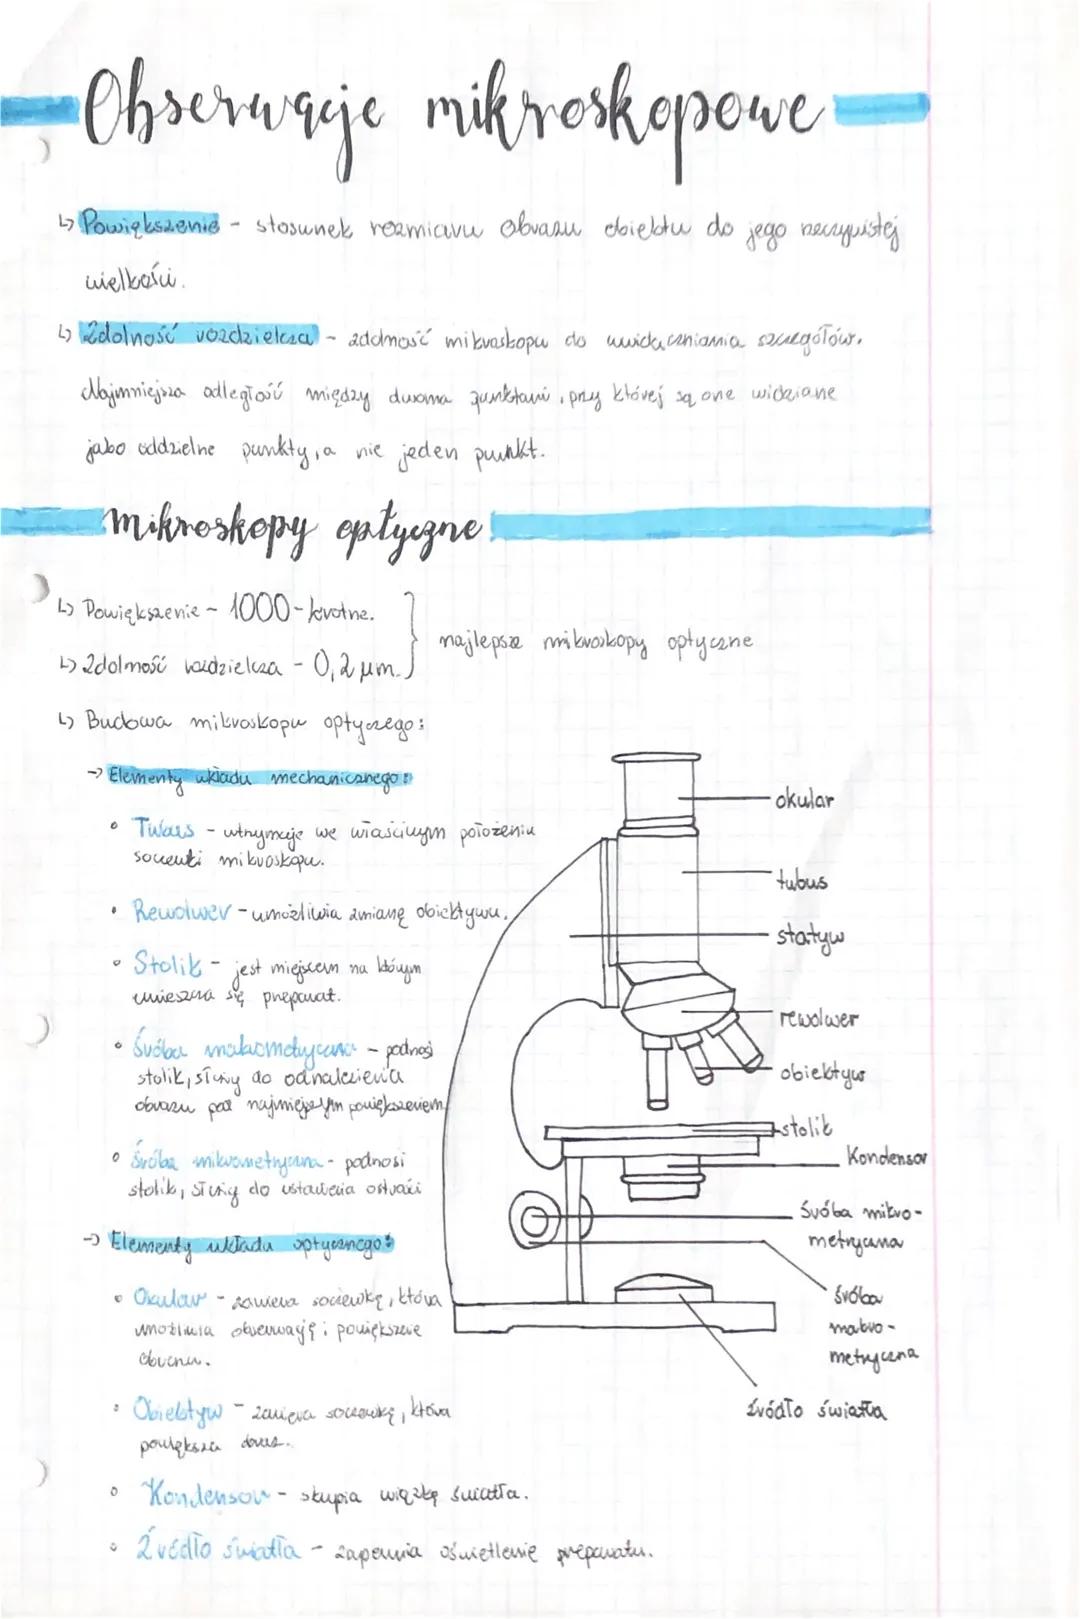 Obserwacje mikroskopowe
↳ Powiększenie - stosunek rozmiaru obrazu obiektu do jego rzeczywistej
wielkości.
↳ Zdolność rozdzielcza - zdolność mikroskopu do uwidaczniania szczegółów.
Najmniejsza odległość między dwoma punktami, przy której są one widziane
jako oddzielne punkty, a nie jeden punkt.
mikroskopy optyczne
↳ Powiększenie - 1000-krotne.
najlepsze mikroskopy optyczne
↳ Zdolność rozdzielcza - 0,2 μm.
↳ Budowa mikroskopu optycznego:
→ Elementy układu mechanicznego:
• Tubus - utrzymuje we właściwym położeniu
soczewki mikroskopu.
• Rewolwer - umożliwia zmianę obiektywu.
• Stolik - jest miejscem na którym
umieszcza się preparat.
• Śruba makrometryczna - podnosi
stolik, służy do odnalezienia
obrazu pod najmniejszym powiększeniem
• Śruba mikrometryczna - podnosi
stolik, służy do ustawienia ostrości
→ Elementy układu optycznego:
• Okular - zawiera soczewkę, która
umożliwia obserwację i powiększenie
obrazu.
• Obiektyw - zawiera soczewkę, która
powiększa obraz.
• Kondensor - skupia wiązkę światła.
• Źródło światła - zapewnia oświetlenie preparatu.
okular
tubus
statyw
rewolwer
obiektyw
stolik
Kondensor
śruba mikro-
metryczna
śruba
makro-
metryczna
źródło światła